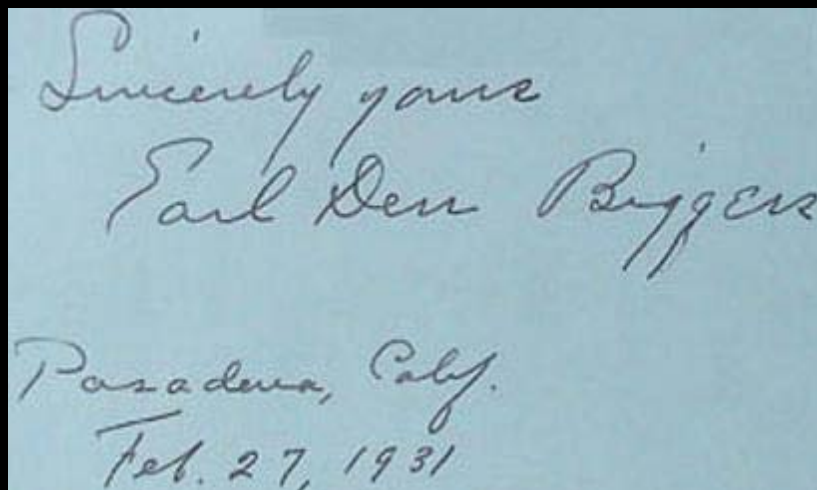 Sincerely yours
Earl Derr Biggers
Pasadena, Calif.
Feb. 27, 1931